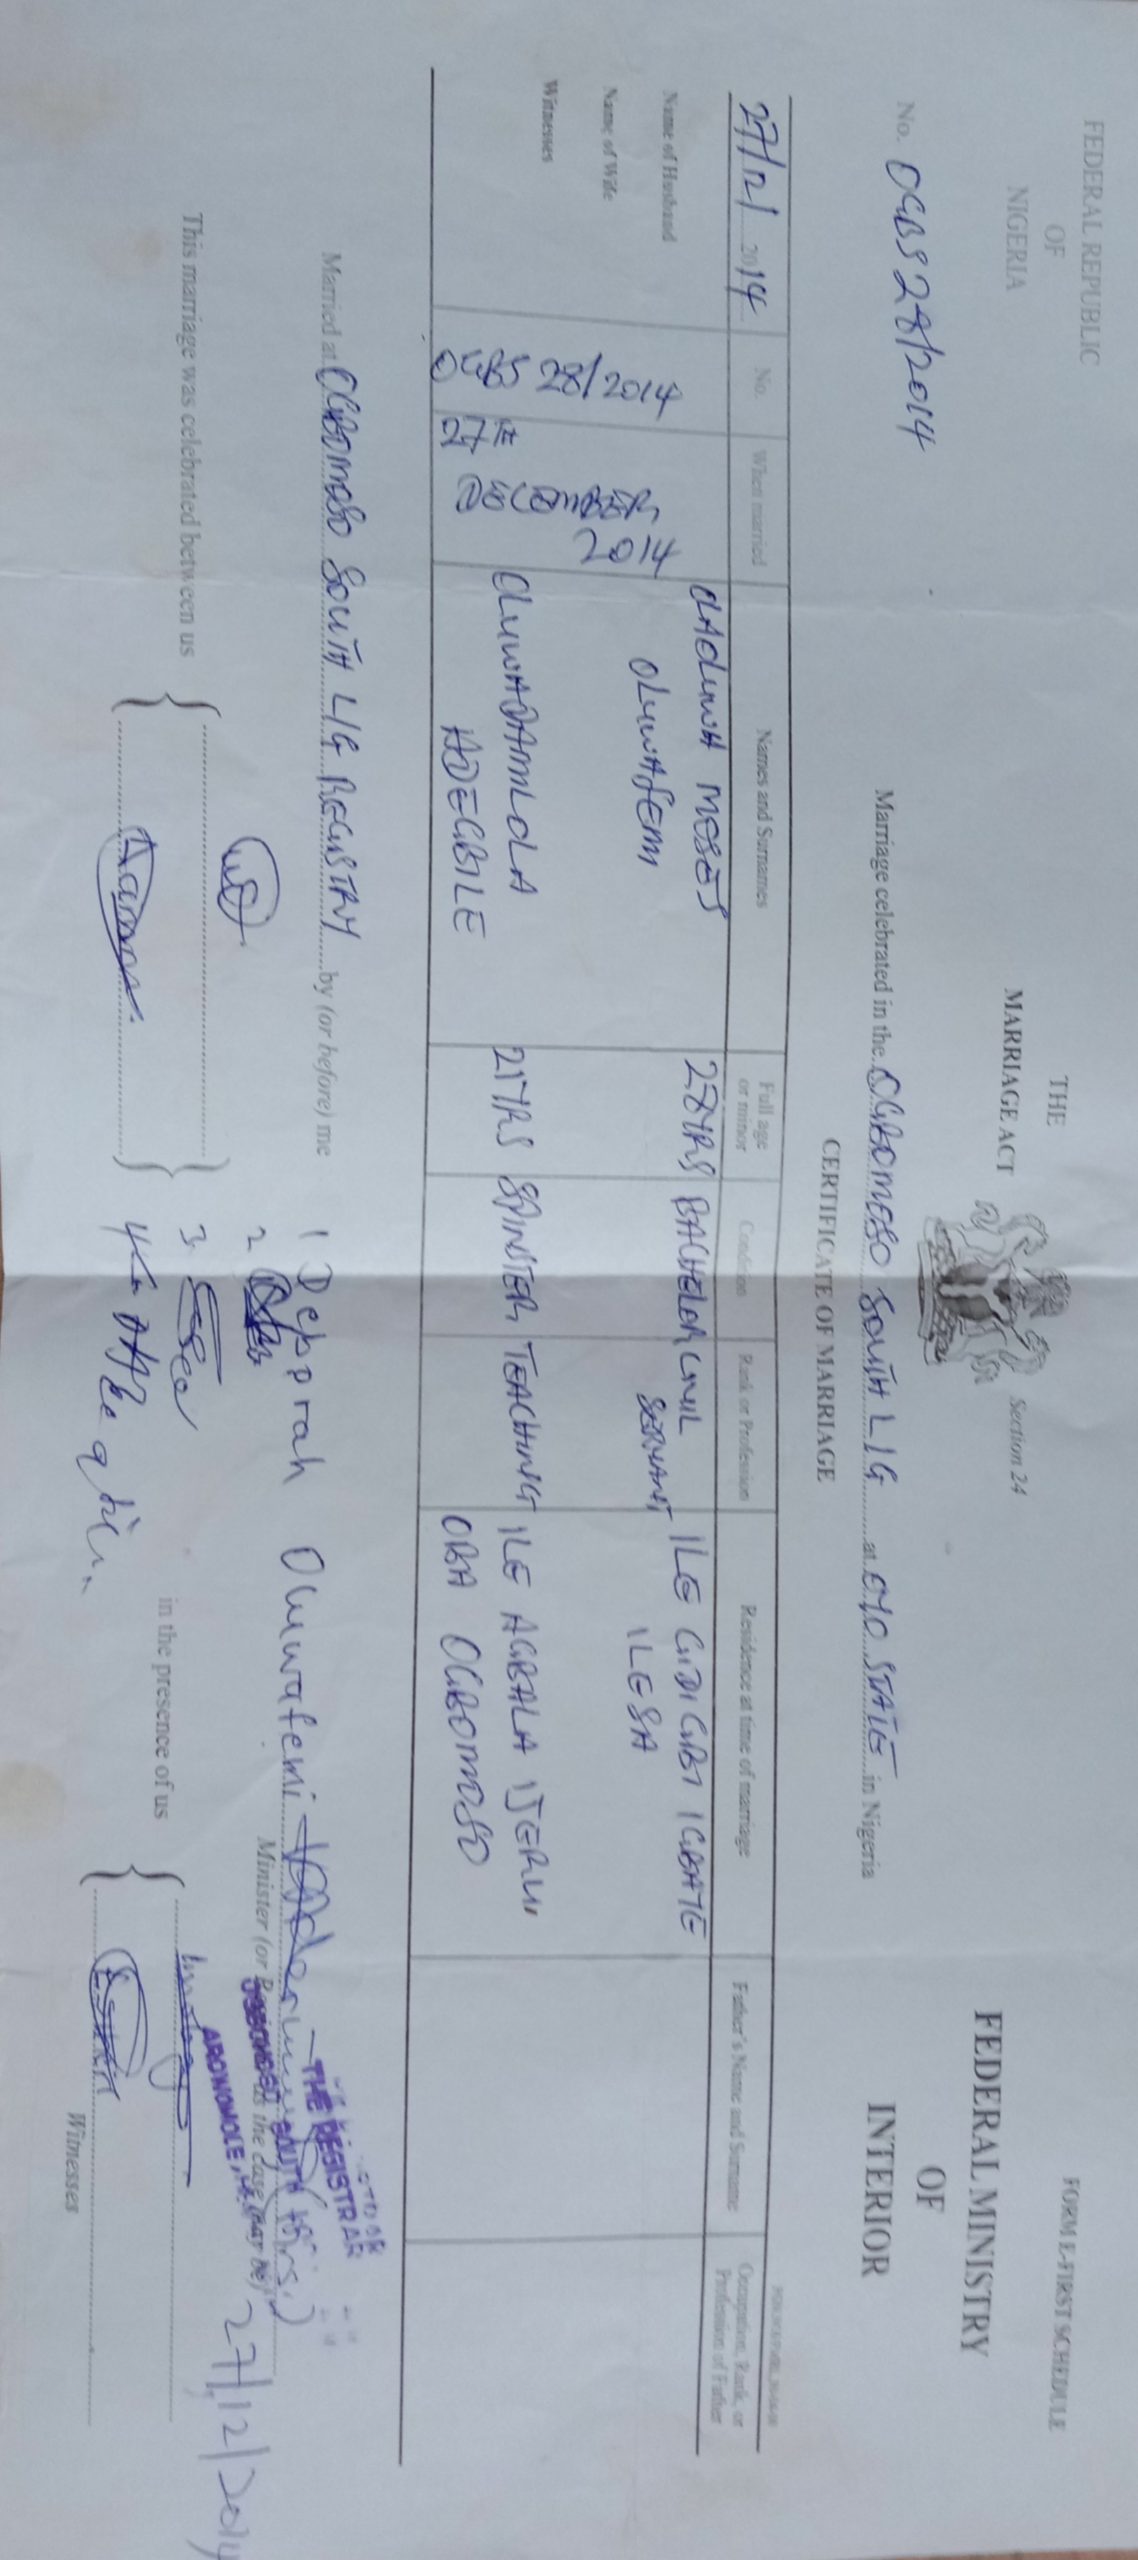 FEDERAL REPUBLIC
OF
NIGERIA
THE
MARRIAGE ACT
Section 24
FORM E-FIRST SCHEDULE
FEDERAL MINISTRY
OF
INTERIOR
No. OGBS 28/2014
Marriage celebrated in the OGBOMOSO SOUTH L/G at OYO STATE in Nigeria
CERTIFICATE OF MARRIAGE
27/12/ 2014
No.
When married
Names and Surnames
Full age or minor
Condition
Rank or Profession
Residence at time of marriage
Father's Name and Surname
Occupation, Rank, or Profession of Father
Name of Husband
OLAOLUWA MOSES
OLUWAFEMI
28YRS
BACHELOR
CIVIL
SERVANT
ILE GIDIGBI IGBAYE
ILESA
Name of Wife
Witnesses
OGBS 28/2014
27TH
DECEMBER,
2014
OLUWADAMILOLA
ADEGBILE
21YRS
SPINSTER
TEACHING
ILE AGBALA IJERU,
OBA OGBOMOSO
Married at OGBOMOSO SOUTH L/G REGISTRY by (or before) me
1 Deborah Oluwafemi
2
3.
4
THE REGISTRAR
OGBOMOSO SOUTH
AROWOMOLE,
Minister (or Registrar as the case may be)
27/12/2014
This marriage was celebrated between us
in the presence of us
Witnesses